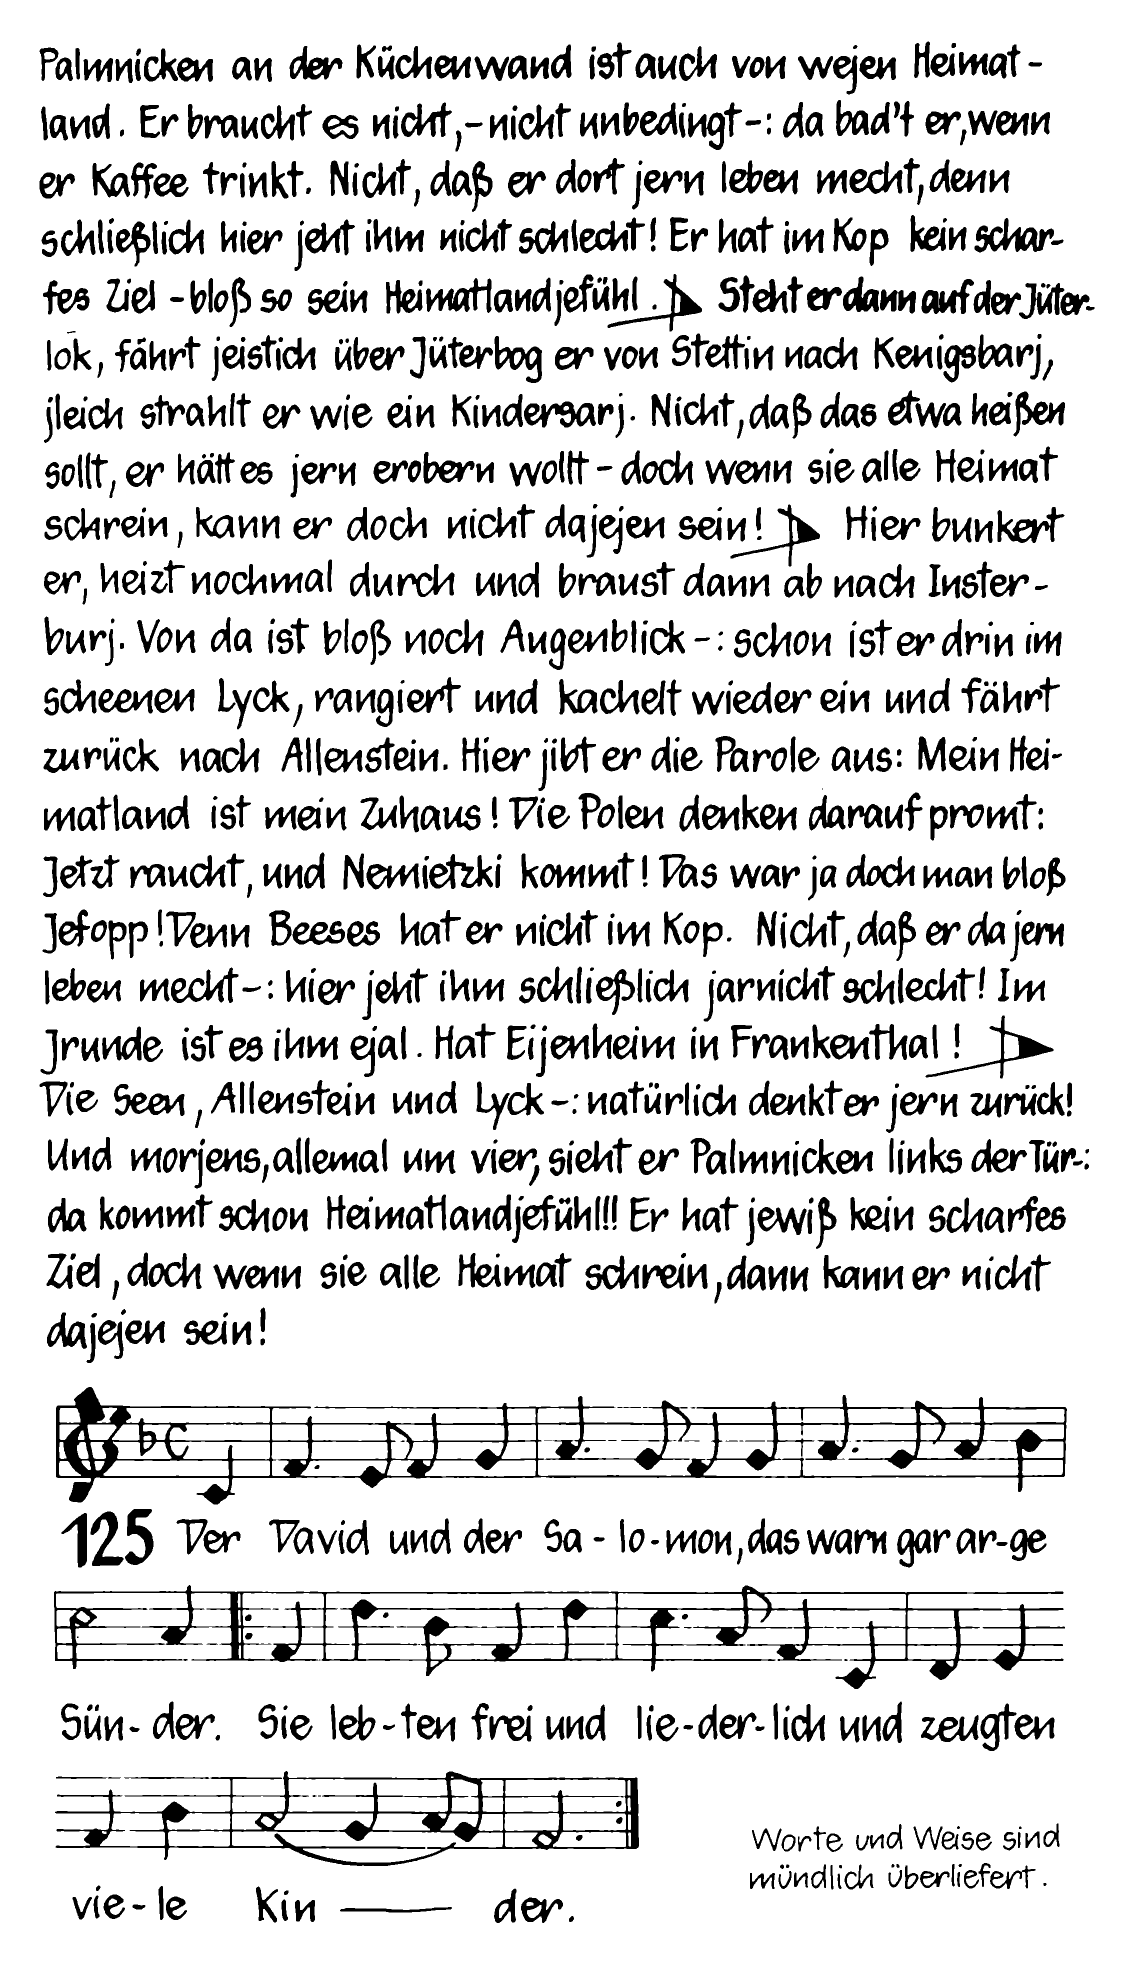 Palmnicken an der Küchenwand ist auch von wejen Heimat-
land. Er braucht es nicht,- nicht unbedingt -: da bad't er, wenn
er Kaffee trinkt. Nicht, daß er dort jern leben mecht, denn
schließlich hier jeht ihm nicht schlecht! Er hat im Kop kein schar-
fes Ziel - bloß so sein Heimatlandjefühl. Steht er dann auf der Jüter-
lok, fährt jeistich über Jüterbog er von Stettin nach Kenigsbarj,
jleich strahlt er wie ein Kindersarj. Nicht, daß das etwa heißen
sollt, er hätt es jern erobern wollt - doch wenn sie alle Heimat
schrein, kann er doch nicht dajejen sein! Hier bunkert
er, heizt nochmal durch und braust dann ab nach Inster-
burj. Von da ist bloß noch Augenblick -: schon ist er drin im
scheenen Lyck, rangiert und kachelt wieder ein und fährt
zurück nach Allenstein. Hier jibt er die Parole aus: Mein Hei-
matland ist mein Zuhaus! Die Polen denken darauf promt:
Jetzt raucht, und Nemietzki kommt! Das war ja doch man bloß
Jefopp! Denn Beeses hat er nicht im Kop. Nicht, daß er da jern
leben mecht -: hier jeht ihm schließlich jarnicht schlecht! Im
Jrunde ist es ihm ejal. Hat Eijenheim in Frankenthal!
Die Seen, Allenstein und Lyck -: natürlich denkt er jern zurück!
Und morjens, allemal um vier, sieht er Palmnicken links der Tür-:
da kommt schon Heimatlandjefühl!!! Er hat jewiß kein scharfes
Ziel, doch wenn sie alle Heimat schrein, dann kann er nicht
dajejen sein!
125 Der David und der Sa - lo - mon, das warn gar ar-ge
Sün- der. Sie leb-ten frei und lie-der-lich und zeugten
vie-le Kin — der.
Worte und Weise sind
mündlich überliefert.